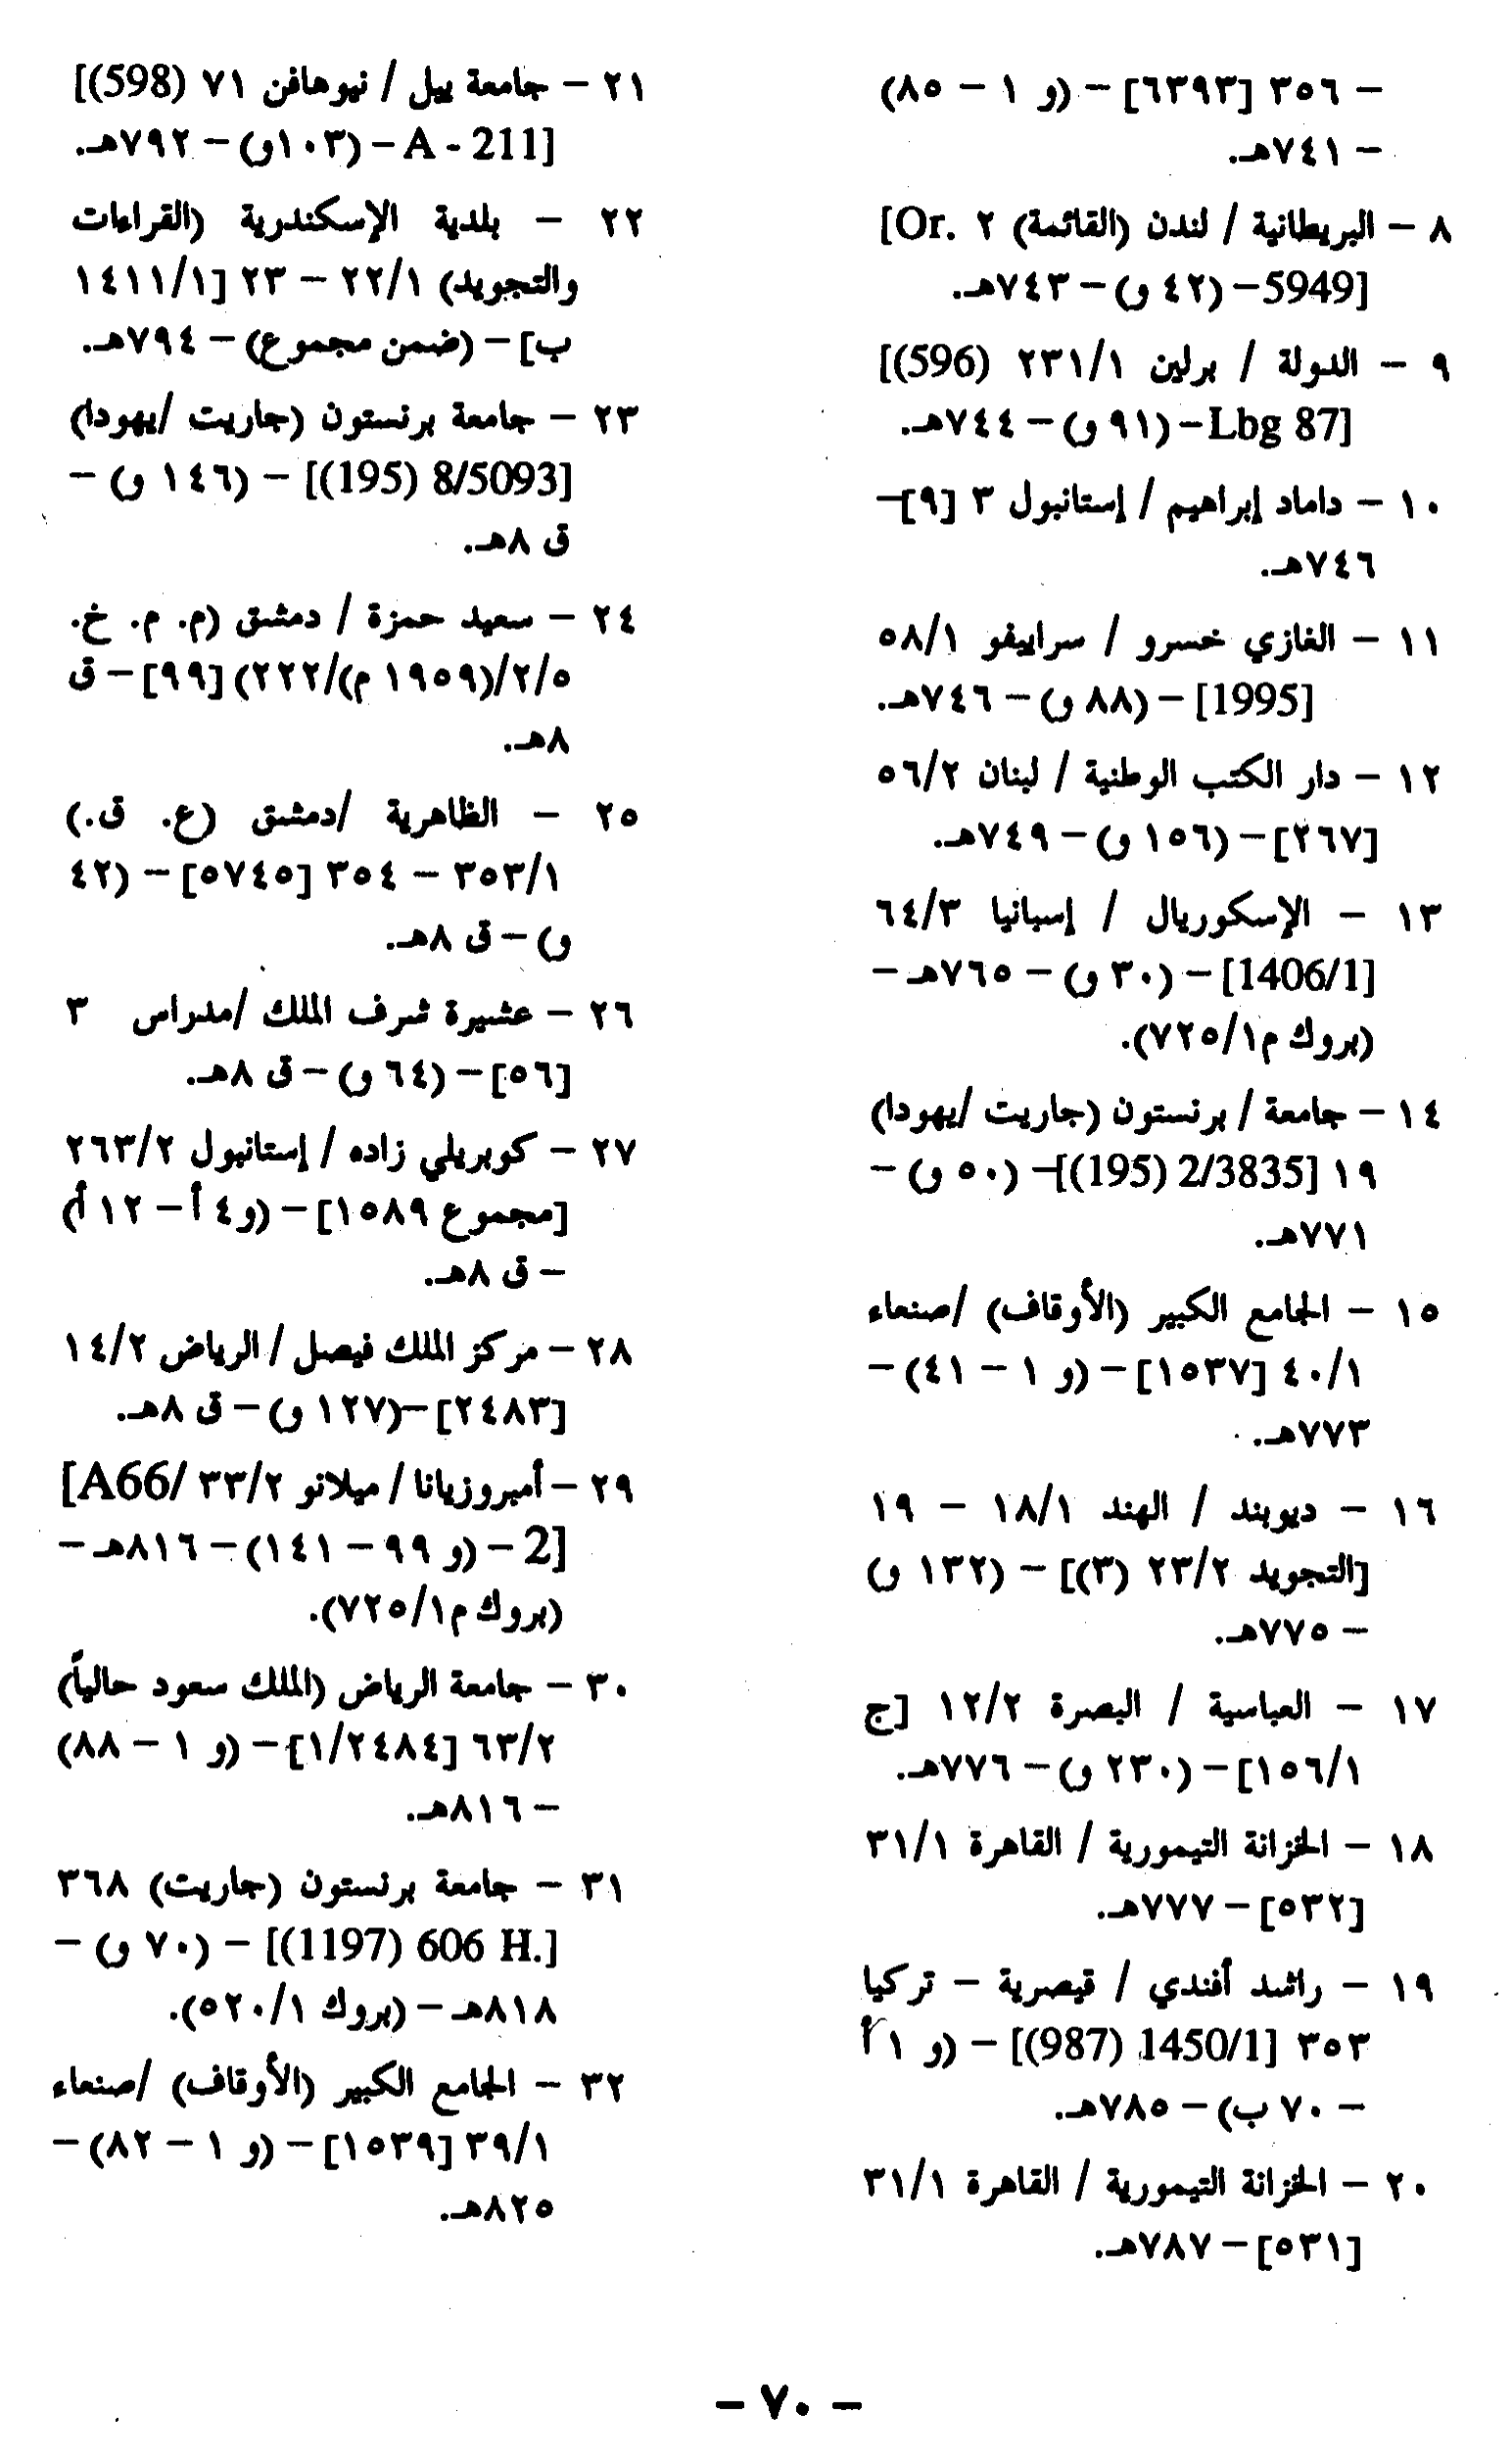 – ٣٥٦ [٦٣٩٣] – (و ١ – ٨٥)
– ٧٤١هـ.
٨ – البريطانية / لندن (القائمة) ٢ [Or.
5949] – (٤٢ و) – ٧٤٣هـ.
٩ – الدولة / برلين ٢٣١/١ [(596)
Lbg 87] – (٩١ و) – ٧٤٤هـ.
١٠ – داماد إبراهيم / إستانبول ٣ [٩] –
٧٤٦هـ.
١١ – الغازي خسرو / سراييفو ٥٨/١
[1995] – (٨٨ و) – ٧٤٦هـ.
١٢ – دار الكتب الوطنية / لبنان ٥٦/٢
[٢٦٧] – (١٥٦ و) – ٧٤٩هـ.
١٣ – الإسكوريال / إسبانيا ٦٤/٣
[1406/1] – (٣٠ و) – ٧٦٥هـ –
(بروك م٧٢٥/١).
١٤ – جامعة / برنستون (جاريت /يهودا)
١٩ [2/3835 (195)] – (٥٠ و) –
٧٧١هـ.
١٥ – الجامع الكبير (الأوقاف) /صنعاء
٤٠/١ [١٥٣٧] – (و ١ – ٤١) –
٧٧٣هـ.
١٦ – ديوبند / الهند ١٨/١ – ١٩
[التجويد ٢٣/٢ (٣)] – (١٣٢ و)
– ٧٧٥هـ.
١٧ – العباسية / البصرة ١٢/٢ [ج
١٥٦/١] – (٢٣٠ و) – ٧٧٦هـ.
١٨ – الخزانة التيمورية / القاهرة ٣١/١
[٥٣٢] – ٧٧٧هـ.
١٩ – راشد أفندي / قيصرية – تركيا
٣٥٣ [1450/1 (987)] – (و ١أ
– ٧٠ ب) – ٧٨٥هـ.
٢٠ – الخزانة التيمورية / القاهرة ٣١/١
[٥٣١] – ٧٨٧هـ.
٢١ – جامعة ييل / نيوهافن ٧١ [(598)
A - 211] – (١٠٣و) – ٧٩٢هـ.
٢٢ – بلدية الإسكندرية (القراءات
والتجويد) ٢٢/١ – ٢٣ [١٤١١/١
ب] – (ضمن مجموع) – ٧٩٤هـ.
٢٣ – جامعة برنستون (جاريت /يهودا)
[8/5093 (195)] – (١٤٦ و) –
ق ٨هـ.
٢٤ – سعيد حمزة / دمشق (م. م. خ.
٢/٥/(١٩٥٩ م)/٢٢٢) [٩٩] – ق
٨هـ.
٢٥ – الظاهرية /دمشق (ع. ق.)
٣٥٣/١ – ٣٥٤ [٥٧٤٥] – (٤٢
و) – ق ٨هـ.
٢٦ – عشيرة شرف الملك /مدراس ٣
[٥٦] – (٦٤ و) – ق ٨هـ.
٢٧ – كوبريلي زاده / إستانبول ٢٦٣/٢
[مجموع ١٥٨٩] – (و٤ أ – ١٢ أ)
– ق ٨هـ.
٢٨ – مركز الملك فيصل / الرياض ١٤/٢
[٢٤٨٣] – (١٢٧ و) – ق ٨هـ.
٢٩ – أمبروزيانا / ميلانو ٣٣/٢ [A66/
2] – (و ٩٩ – ١٤١) – ٨١٦هـ –
(بروك م٧٢٥/١).
٣٠ – جامعة الرياض (الملك سعود حالياً)
٦٣/٢ [١/٢٤٨٤] – (و ١ – ٨٨)
– ٨١٦هـ.
٣١ – جامعة برنستون (جاريت) ٣٦٨
[606 H. (1197)] – (٧٠ و) –
٨١٨هـ – (بروك ٥٢٠/١).
٣٢ – الجامع الكبير (الأوقاف) /صنعاء
٣٩/١ [١٥٣٩] – (و ١ – ٨٢) –
٨٢٥هـ.
– ٧٠ –